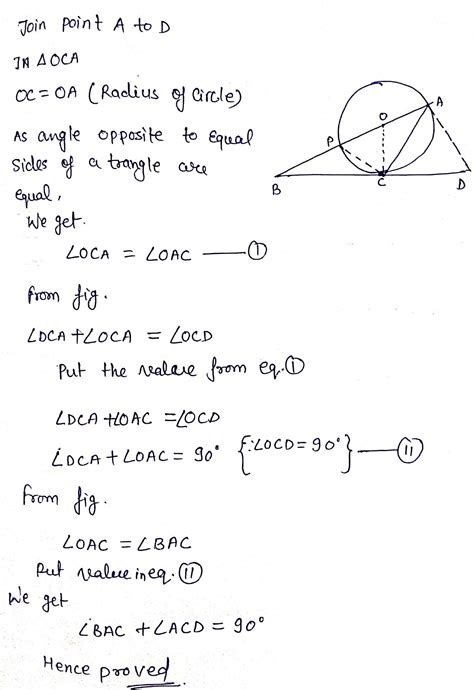 Join point A to D
IN △OCA
OC = OA (Radius of Circle)
As angle opposite to equal
sides of a trangle are
equal,
We get.
∠OCA = ∠OAC —— Ⓘ
from fig.
∠DCA + ∠OCA = ∠OCD
Put the value from eq. Ⓘ
∠DCA + ∠OAC = ∠OCD
∠DCA + ∠OAC = 90° {∵∠OCD = 90°} —— (II)
from fig.
∠OAC = ∠BAC
Put value in eq. (II)
We get
∠BAC + ∠ACD = 90°
Hence proved
A
O
P
B
C
D